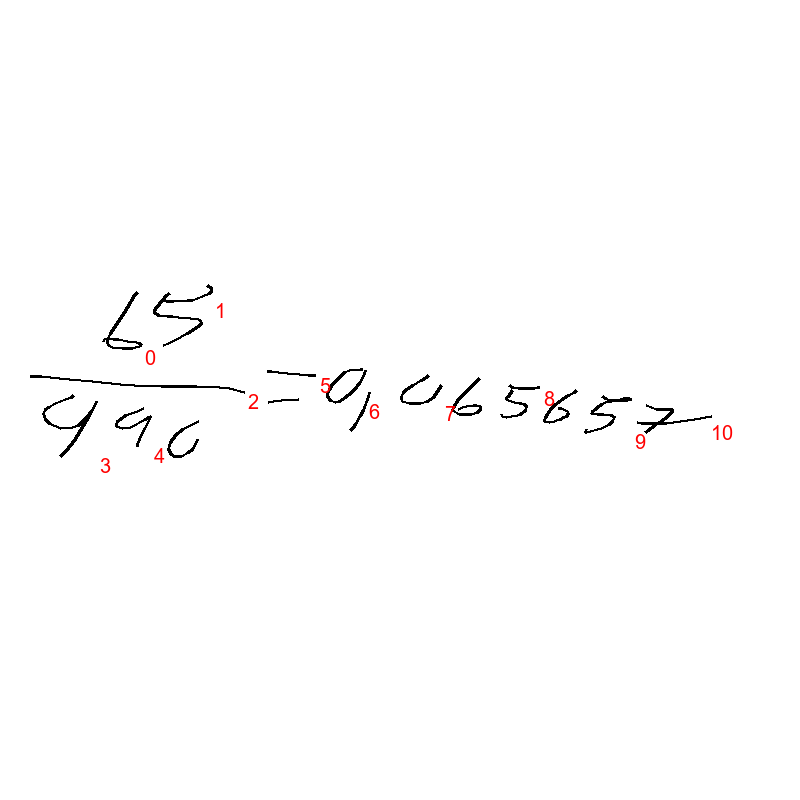 65
990 = 0,065657
0 1 2 3 4 5 6 7 8 9 10